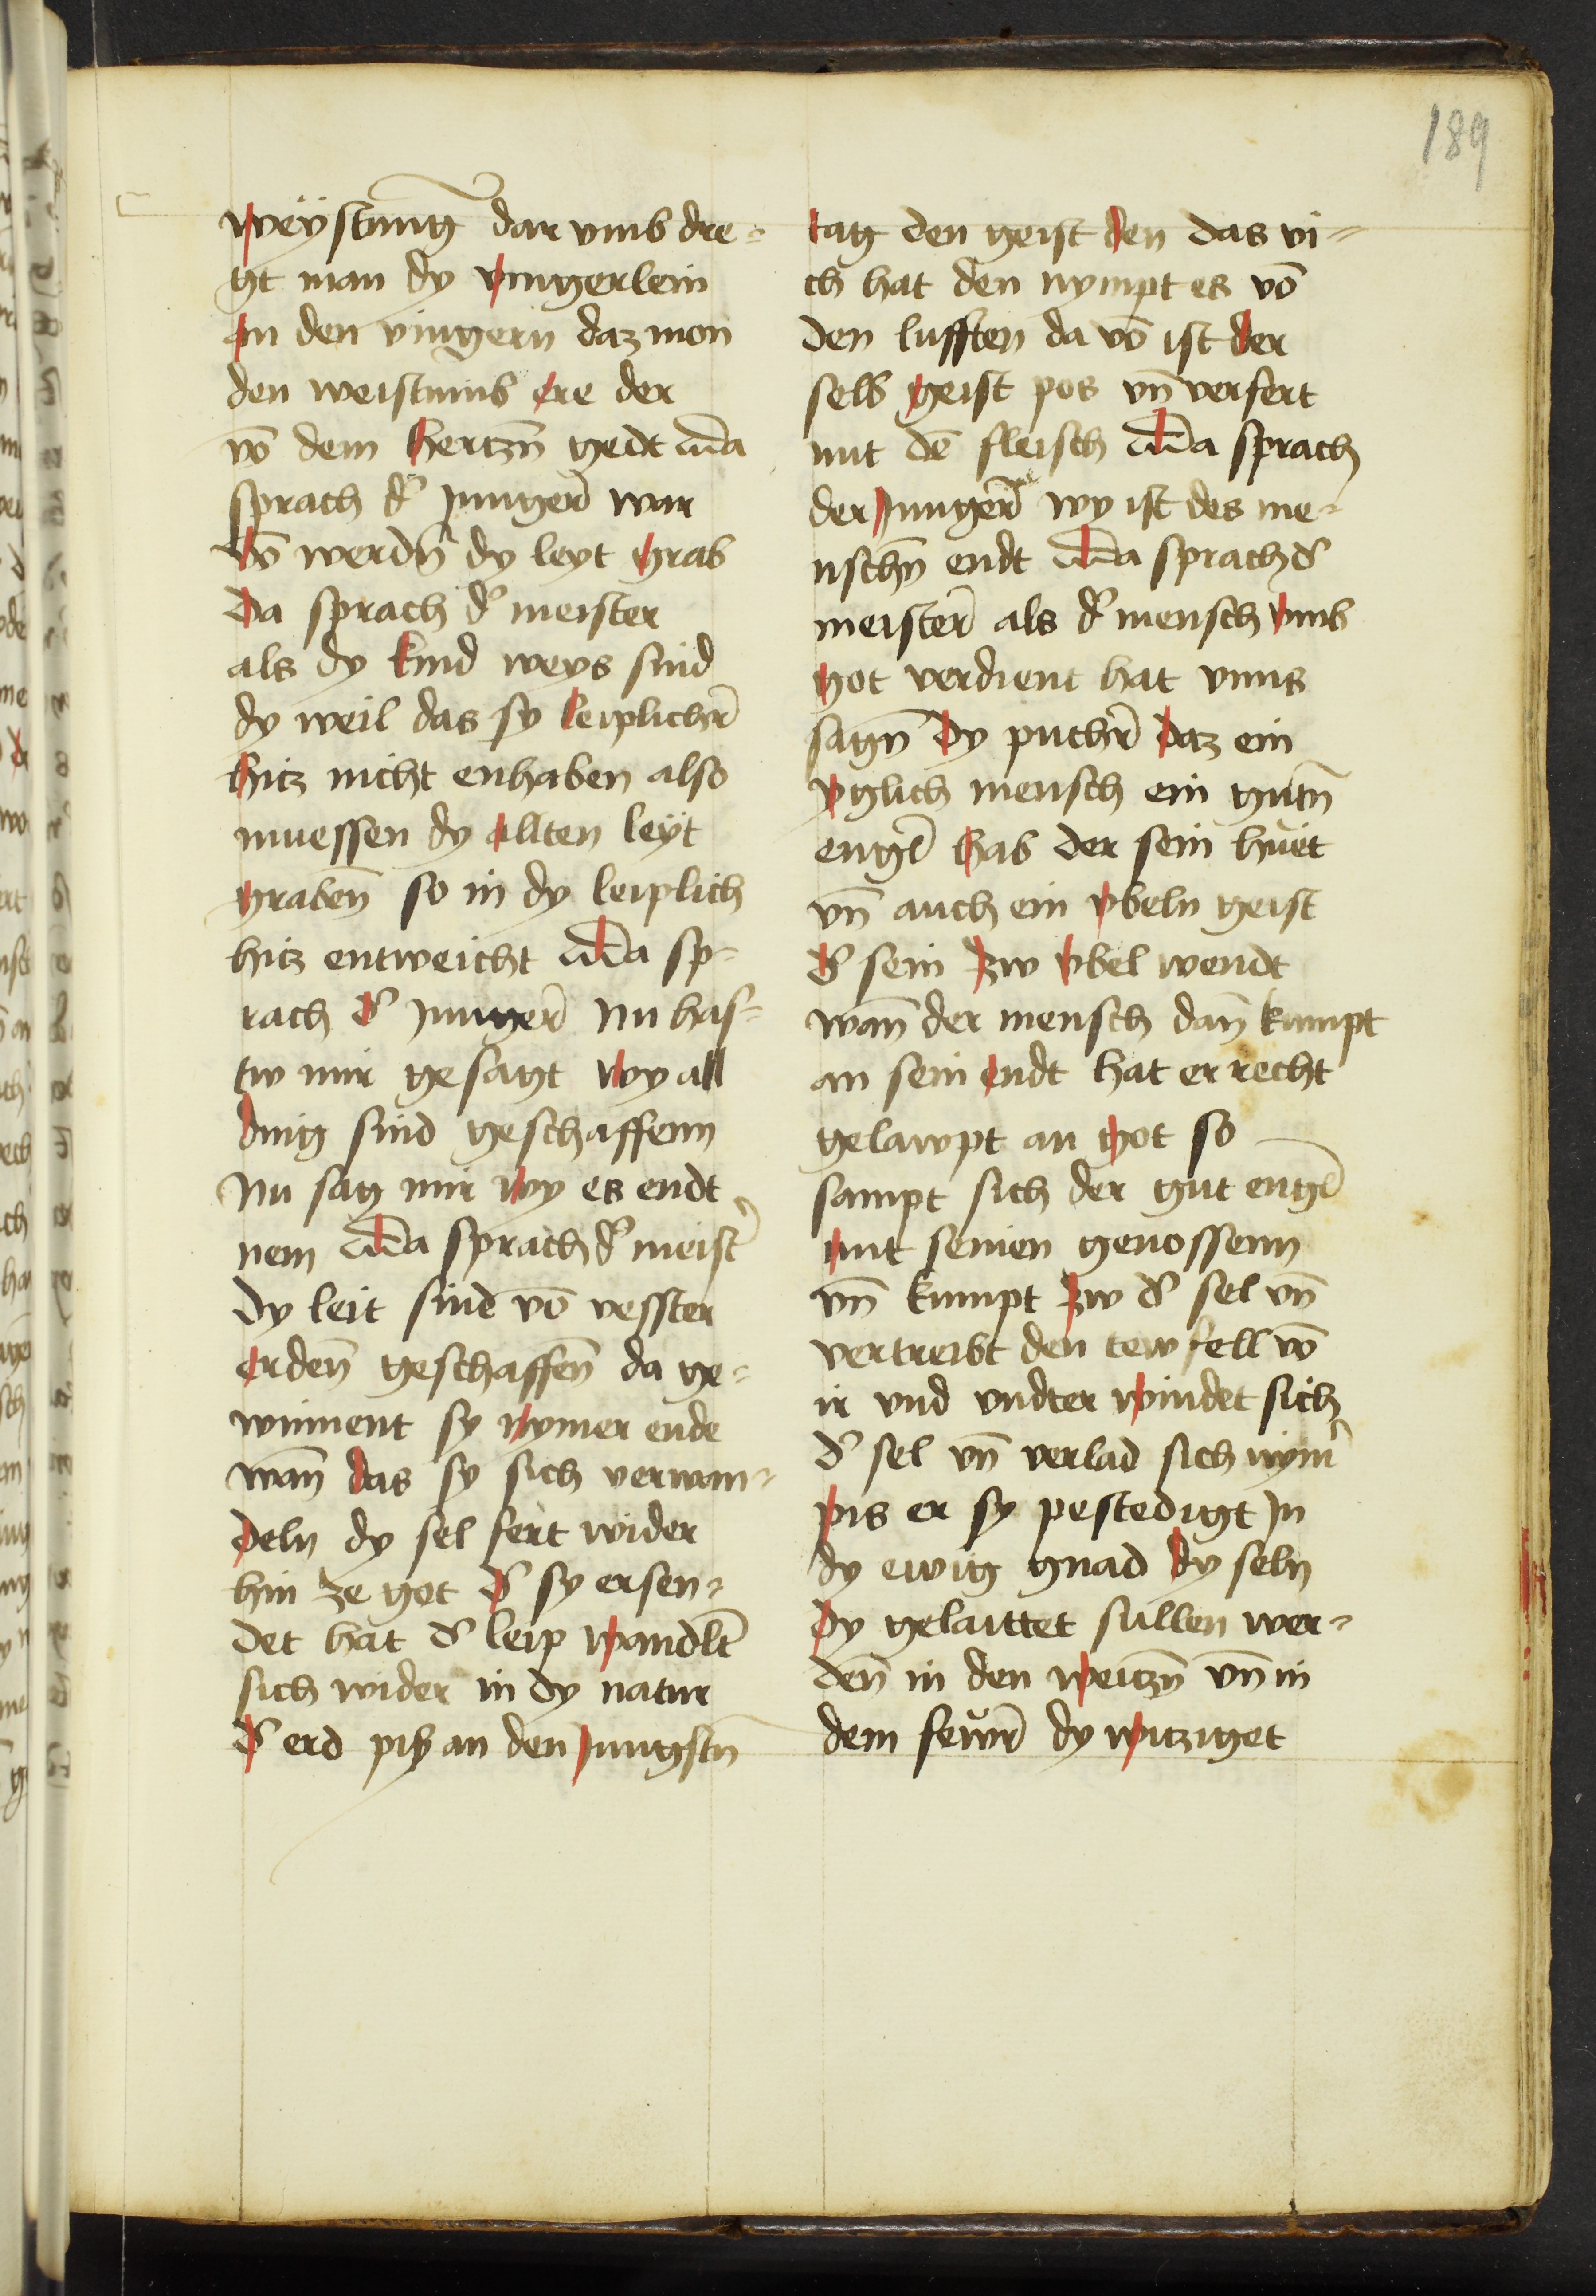 189
weÿstung dar vmb dre-
gt man dy vingerlein
an den vingern daz mon
den weistumb ere der
vō dem hertzn̄ gedt Da
sprach d' Junger̄ war
vō werdn̄ dy leyt grab
Da sprach d' meister
als dy kind weys sind
dy weil das sy leiplicher̄
hitz nicht enhaben also
muessen dy allten leÿt
graben̄ so in dy leiplich
hitz entweicht Da sp-
rach d' Junger̄ Nu has-
tw mir gesagt wy all
ding sind geschaffenn
Nu sag mir wy es endt
nem Da sprach d' meist'
Dy leit sind vō vesster
erden̄ geschaffen̄ da ge-
winnent sy nymer ende
wan̄ das sy sich verwan-
deln dy sel fert wider
hin ze got d' sy ersen-
det hat d' leip wandlt'
sich wider in dy natur
d' erd piß an den Jungstn
tag den geist den das vi-
ch hat den nympt es vō
den lufften da vō ist der
selb geist pos vn̄ verfert
mit dē fleisch Da sprach
der Junger̄ wy ist des me-
nschn̄ endt Da sprach d'
meister̄ als d' mensch vmb
got verdient hat vnns
sagn̄ dy pucher̄ daz ein
yglich mensch ein gutn̄
engl̄ hab der sein huet
vn̄ auch ein vbeln geist
d' sein zw vbel wendt
wan̄ der mensch dan̄ kumpt
an sein endt hat er recht
gelawpt an got so
sampt sich der gut engl̄
mit seinen genossenn
vn̄ kumpt zw d' sel vn̄
vertreibt den tewfell vō
ir vnd vndter windet sich
d' sel vn̄ verlad sich nym'
pis er sy pestedigt In
dy ewig gnad dy seln
dy gelaittet sullen wer-
den̄ in den weitzn̄ vn̄ in
dem fewr̄ dy witziget